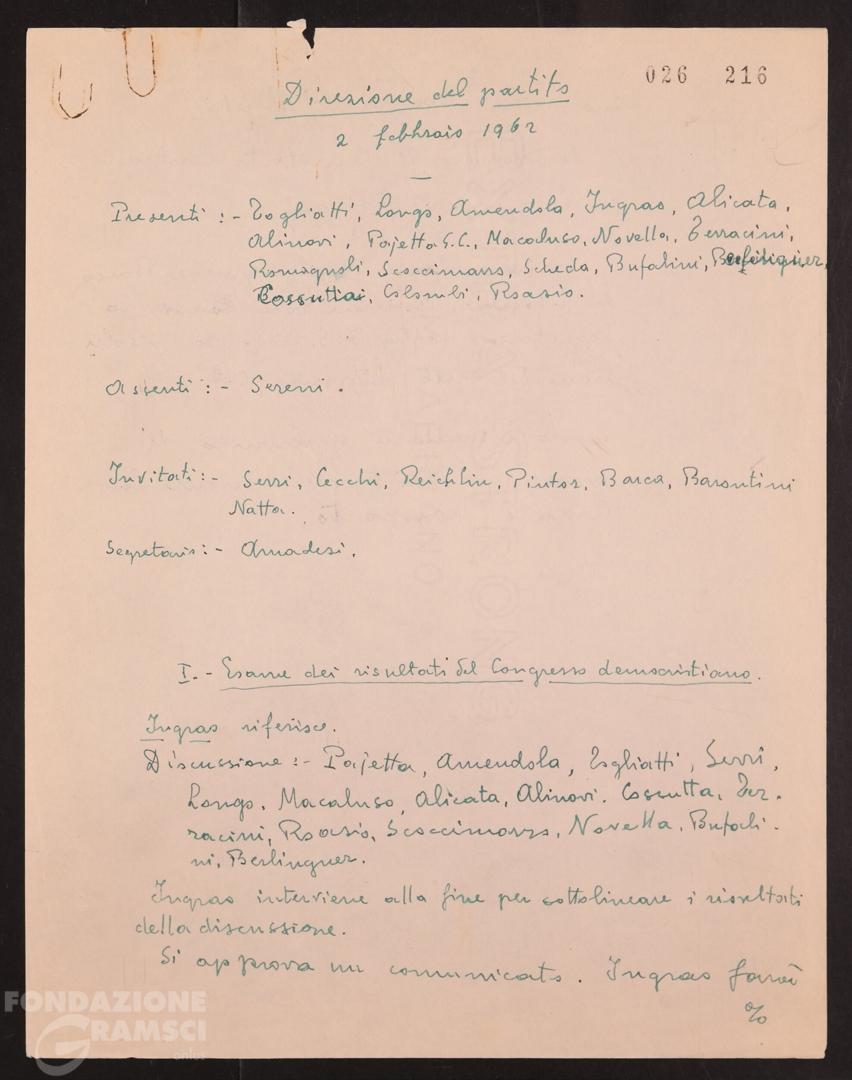 026 216
Direzione del partito
2 febbraio 1962
Presenti :- Togliatti, Longo, Amendola, Ingrao, Alicata,
Alinovi, Pajetta G.C., Macaluso, Novella, Terracini,
Romagnoli, Scoccimarro, Scheda, Bufalini, Berlinguer,
Cossutta, Colombi, Roasio.
Assenti :- Sereni.
Invitati :- Serri, Cecchi, Reichlin, Pintor, Barca, Barontini
Natta.
Segretario :- Amadesi.
I. - Esame dei risultati del Congresso democristiano.
Ingrao riferisce.
Discussione :- Pajetta, Amendola, Togliatti, Serri,
Longo, Macaluso, Alicata, Alinovi, Cossutta, Ter-
racini, Roasio, Scoccimarro, Novella, Bufali-
ni, Berlinguer.
Ingrao interviene alla fine per sottolineare i risultati
della discussione.
Si approva un comunicato. Ingrao farà
%
FONDAZIONE
GRAMSCI
onlus